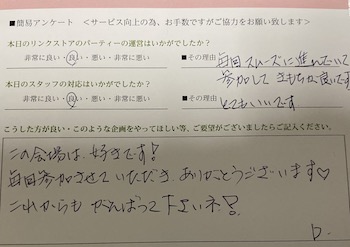 ■簡易アンケート　＜サービス向上の為、お手数ですがご協力をお願い致します＞
本日のリンクストアのパーティーの運営はいかがでしたか？
非常に良い・良い・悪い・非常に悪い　■その理由　毎回スムーズに進んでいて
参加して きもちが良いです
本日のスタッフの対応はいかがでしたか？
非常に良い・良い・悪い・非常に悪い　■その理由　とてもいいです
こうした方が良い・このような企画をやってほしい等、ご要望がございましたらご記入ください。
この会場は、好きです！
毎回参加させていただき ありがとうございます♡
これからも がんばって下さいネ！